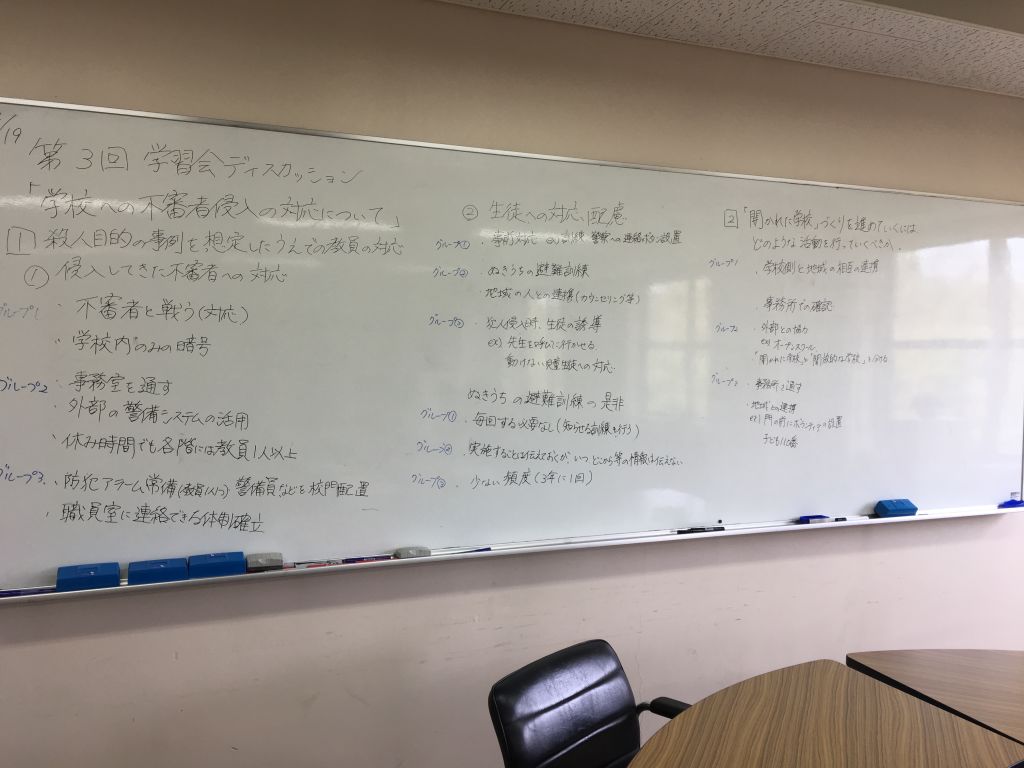 /19
第3回 学習会ディスカッション
「学校への不審者侵入の対応について」
1 殺人目的の事例を想定したうえでの教員の対応
① 侵入してきた不審者への対応
グループ1 ・不審者と戦う(対応)
・"学校内"のみの暗号
グループ2 ・事務室を通す
・外部の警備システムの活用
・休み時間でも各階には教員1人以上
グループ3 ・防犯アラーム常備(教員1人1つ) 警備員などを校門配置
・職員室に連絡できる体制確立
② 生徒への対応、配慮
グループ① ・事前対応 訓練 警察への連絡ボタン設置
グループ② ・ぬきうちの避難訓練
・地域の人との連携(カウンセリング等)
グループ③ ・犯人侵入時、生徒の誘導
ex) 先生を呼びに行かせる
動けない児童生徒への対応
ぬきうちの避難訓練の是非
グループ① ・毎回する必要なし(知らせる訓練も行う)
グループ② ・実施することは伝えておくが、いつ、どこから等の情報は伝えない
グループ③ ・少ない頻度(3年に1回)
2 「開かれた学校」づくりを進めていくには
どのような活動を行っていくべきか。
グループ1 ・学校側と地域の相互の連携
・事務所での確認
グループ2 ・外部との協力
ex) オープンスクール
「開かれた学校」と「開放的な学校」を分ける
グループ3 ・事務所を通す
・地域との連携
ex) 門の前にボランティアの設置
子ども110番